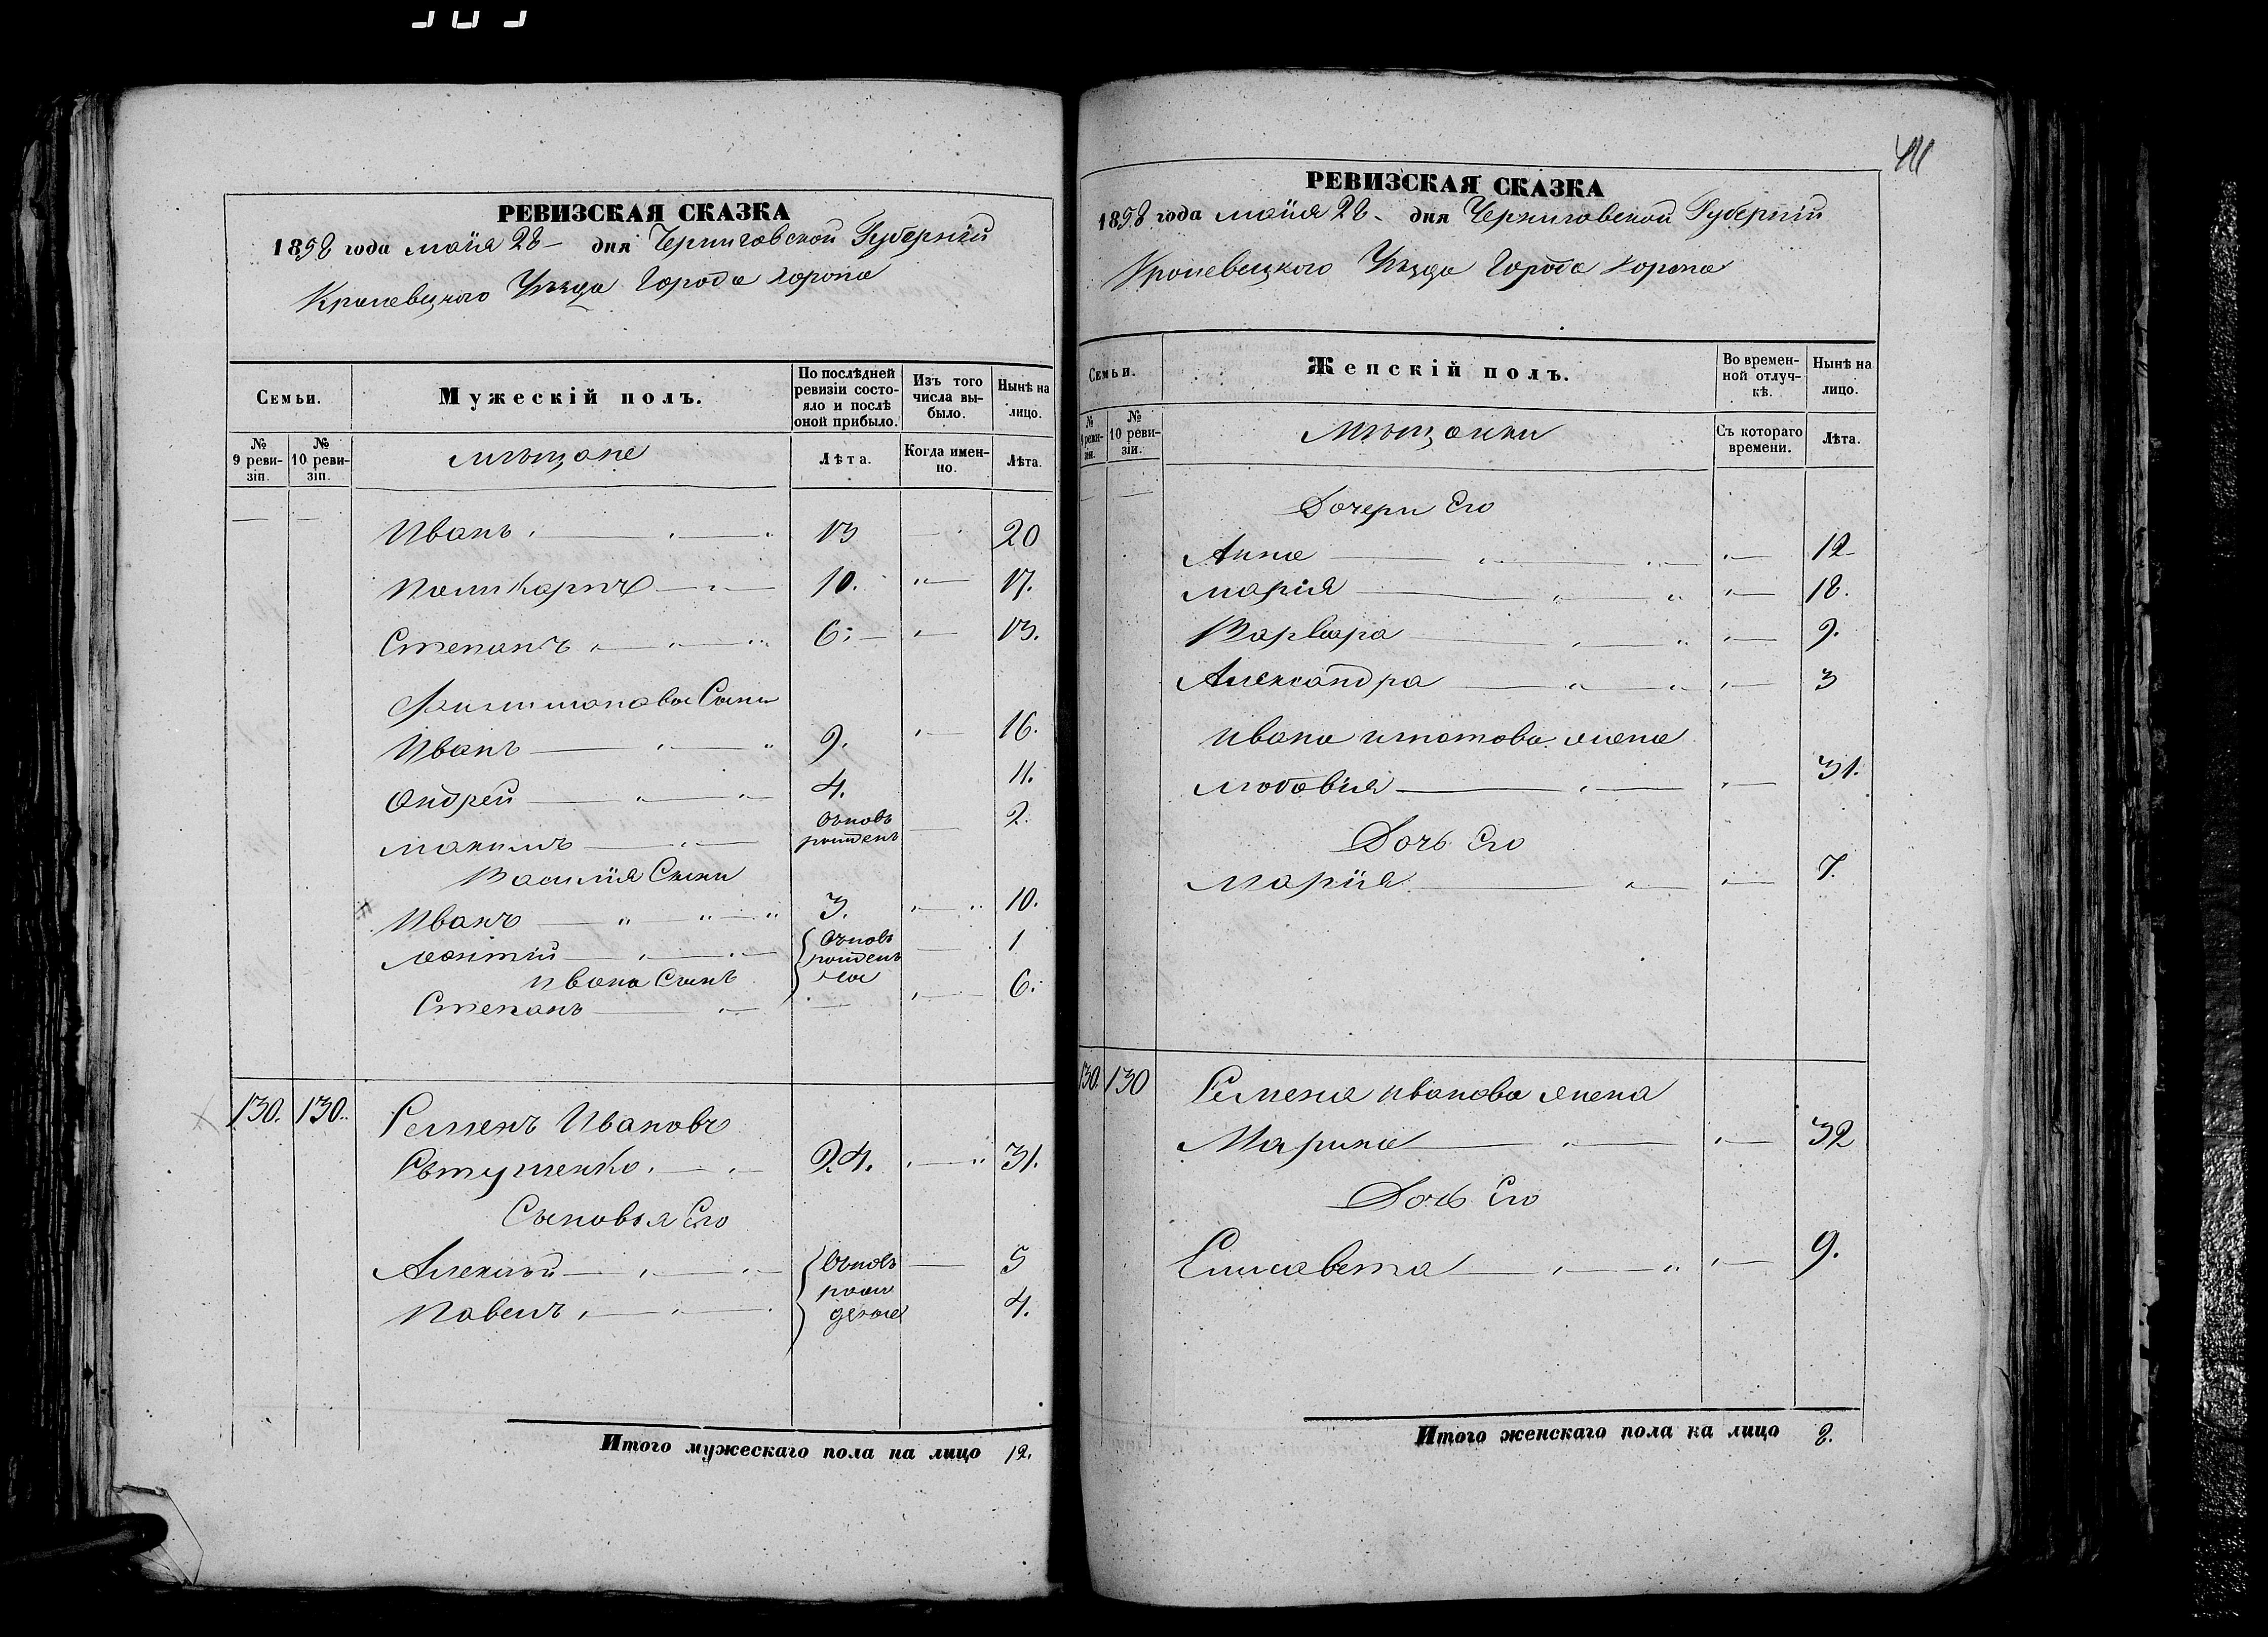 РЕВИЗСКАЯ СКАЗКА
1858 года маія 28 дня Черниговской Губерніи
Кролевецкого Уѣзда Города Коропа
Семьи.
Мужескій полъ.
По послѣдней ревизіи состояло и послѣ оной прибыло.
Изъ того числа выбыло.
Нынѣ на лицо.
№ 9 ревизіи.
№ 10 ревизіи.
мѣщане
Лѣта.
Когда именно.
Лѣта.
Иванъ 13 20
Поликарпъ 10. 17.
Степанъ 6. 13.
Филимонова Сыны
Иванъ 9. 16.
Андрей 4. 11.
Максимъ вновь рожденъ 2.
Василія Сыны
Иванъ 3. 10.
Леонтій вновь рожден 1
Ивана Сынъ
Степанъ 6.
130. 130. Семенъ Ивановъ
Евтушенко 24. 31.
Сыновья Его
Алексѣй вновь 5
Павелъ рожденые 4.
Итого мужескаго пола на лицо 12.
411
РЕВИЗСКАЯ СКАЗКА
1858 года маія 28 дня Черниговской Губерніи
Кролевецкого Уѣзда Города Коропа
Семьи.
Женскій полъ.
Во временной отлучкѣ.
Нынѣ на лицо.
№ 9 ревизіи.
№ 10 ревизіи.
Мѣщанки
Съ котораго времени.
Лѣта.
Дочери Его
Анна 12
Марія 18.
Варвара 9.
Александра 3
Ивана Игнатова жена
Любовія 31.
Дочь Его
Марія 7.
130. 130 Семена Иванова жена
Марина 32
Дочь Его
Елисавета 9.
Итого женскаго пола на лицо 8.